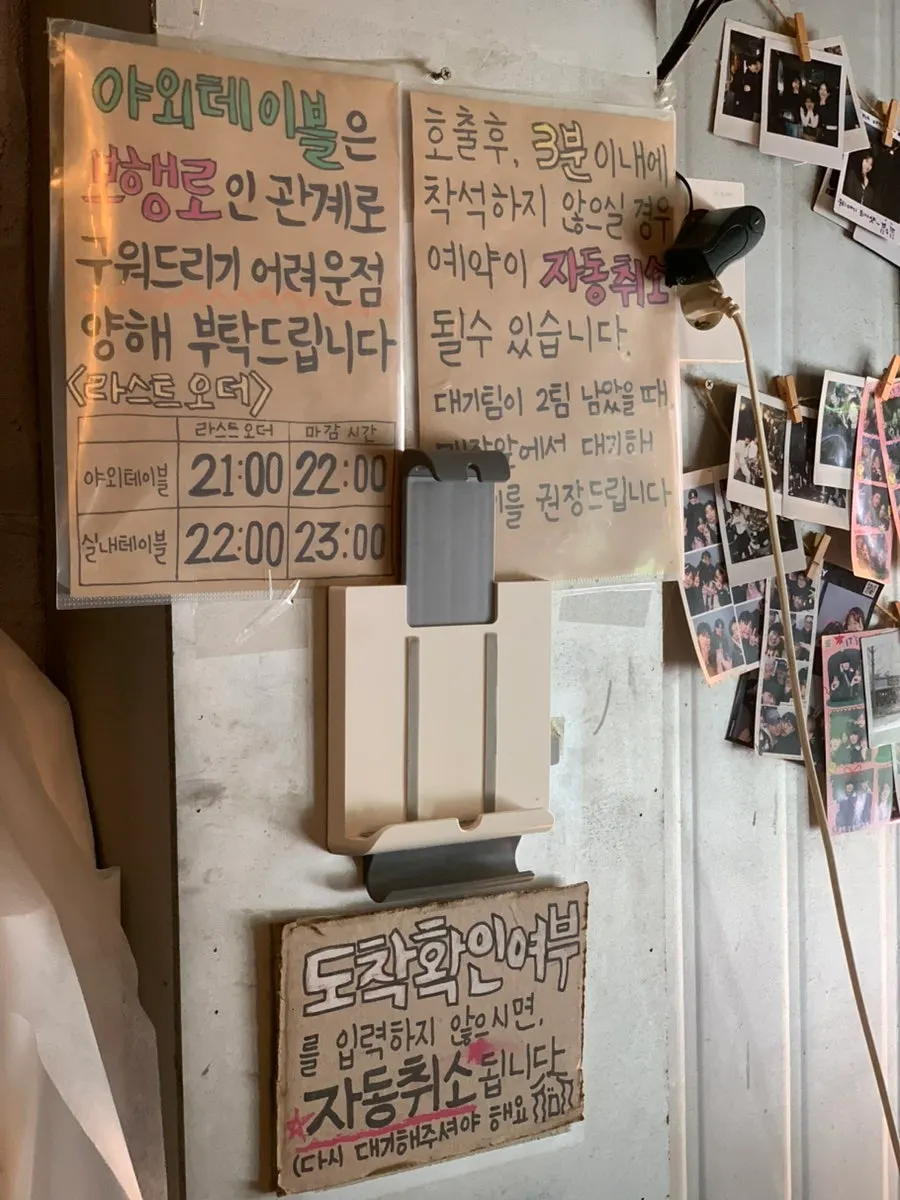 야외테이블은
보행로인 관계로
구워드리기 어려운점
양해 부탁드립니다
<라스트오더>
라스트오더 마감 시간
야외테이블 21:00 22:00
실내테이블 22:00 23:00
호출후, 3분 이내에
착석하지 않으실 경우
예약이 자동취소
될수 있습니다.
대기팀이 2팀 남았을 때
대기해
를 권장드립니다
도착확인여부
를 입력하지 않으시면,
자동취소됩니다
(다시 대기해주셔야 해요